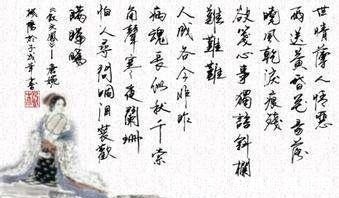 世情薄人情惡
雨送黃昏花易落
曉風乾淚痕殘
欲箋心事獨語斜欄
難難難
人成各今非昨
病魂長似秋千索
角聲寒夜闌珊
怕人尋問咽泪裝歡
瞞瞞瞞
《釵頭鳳》—唐琬